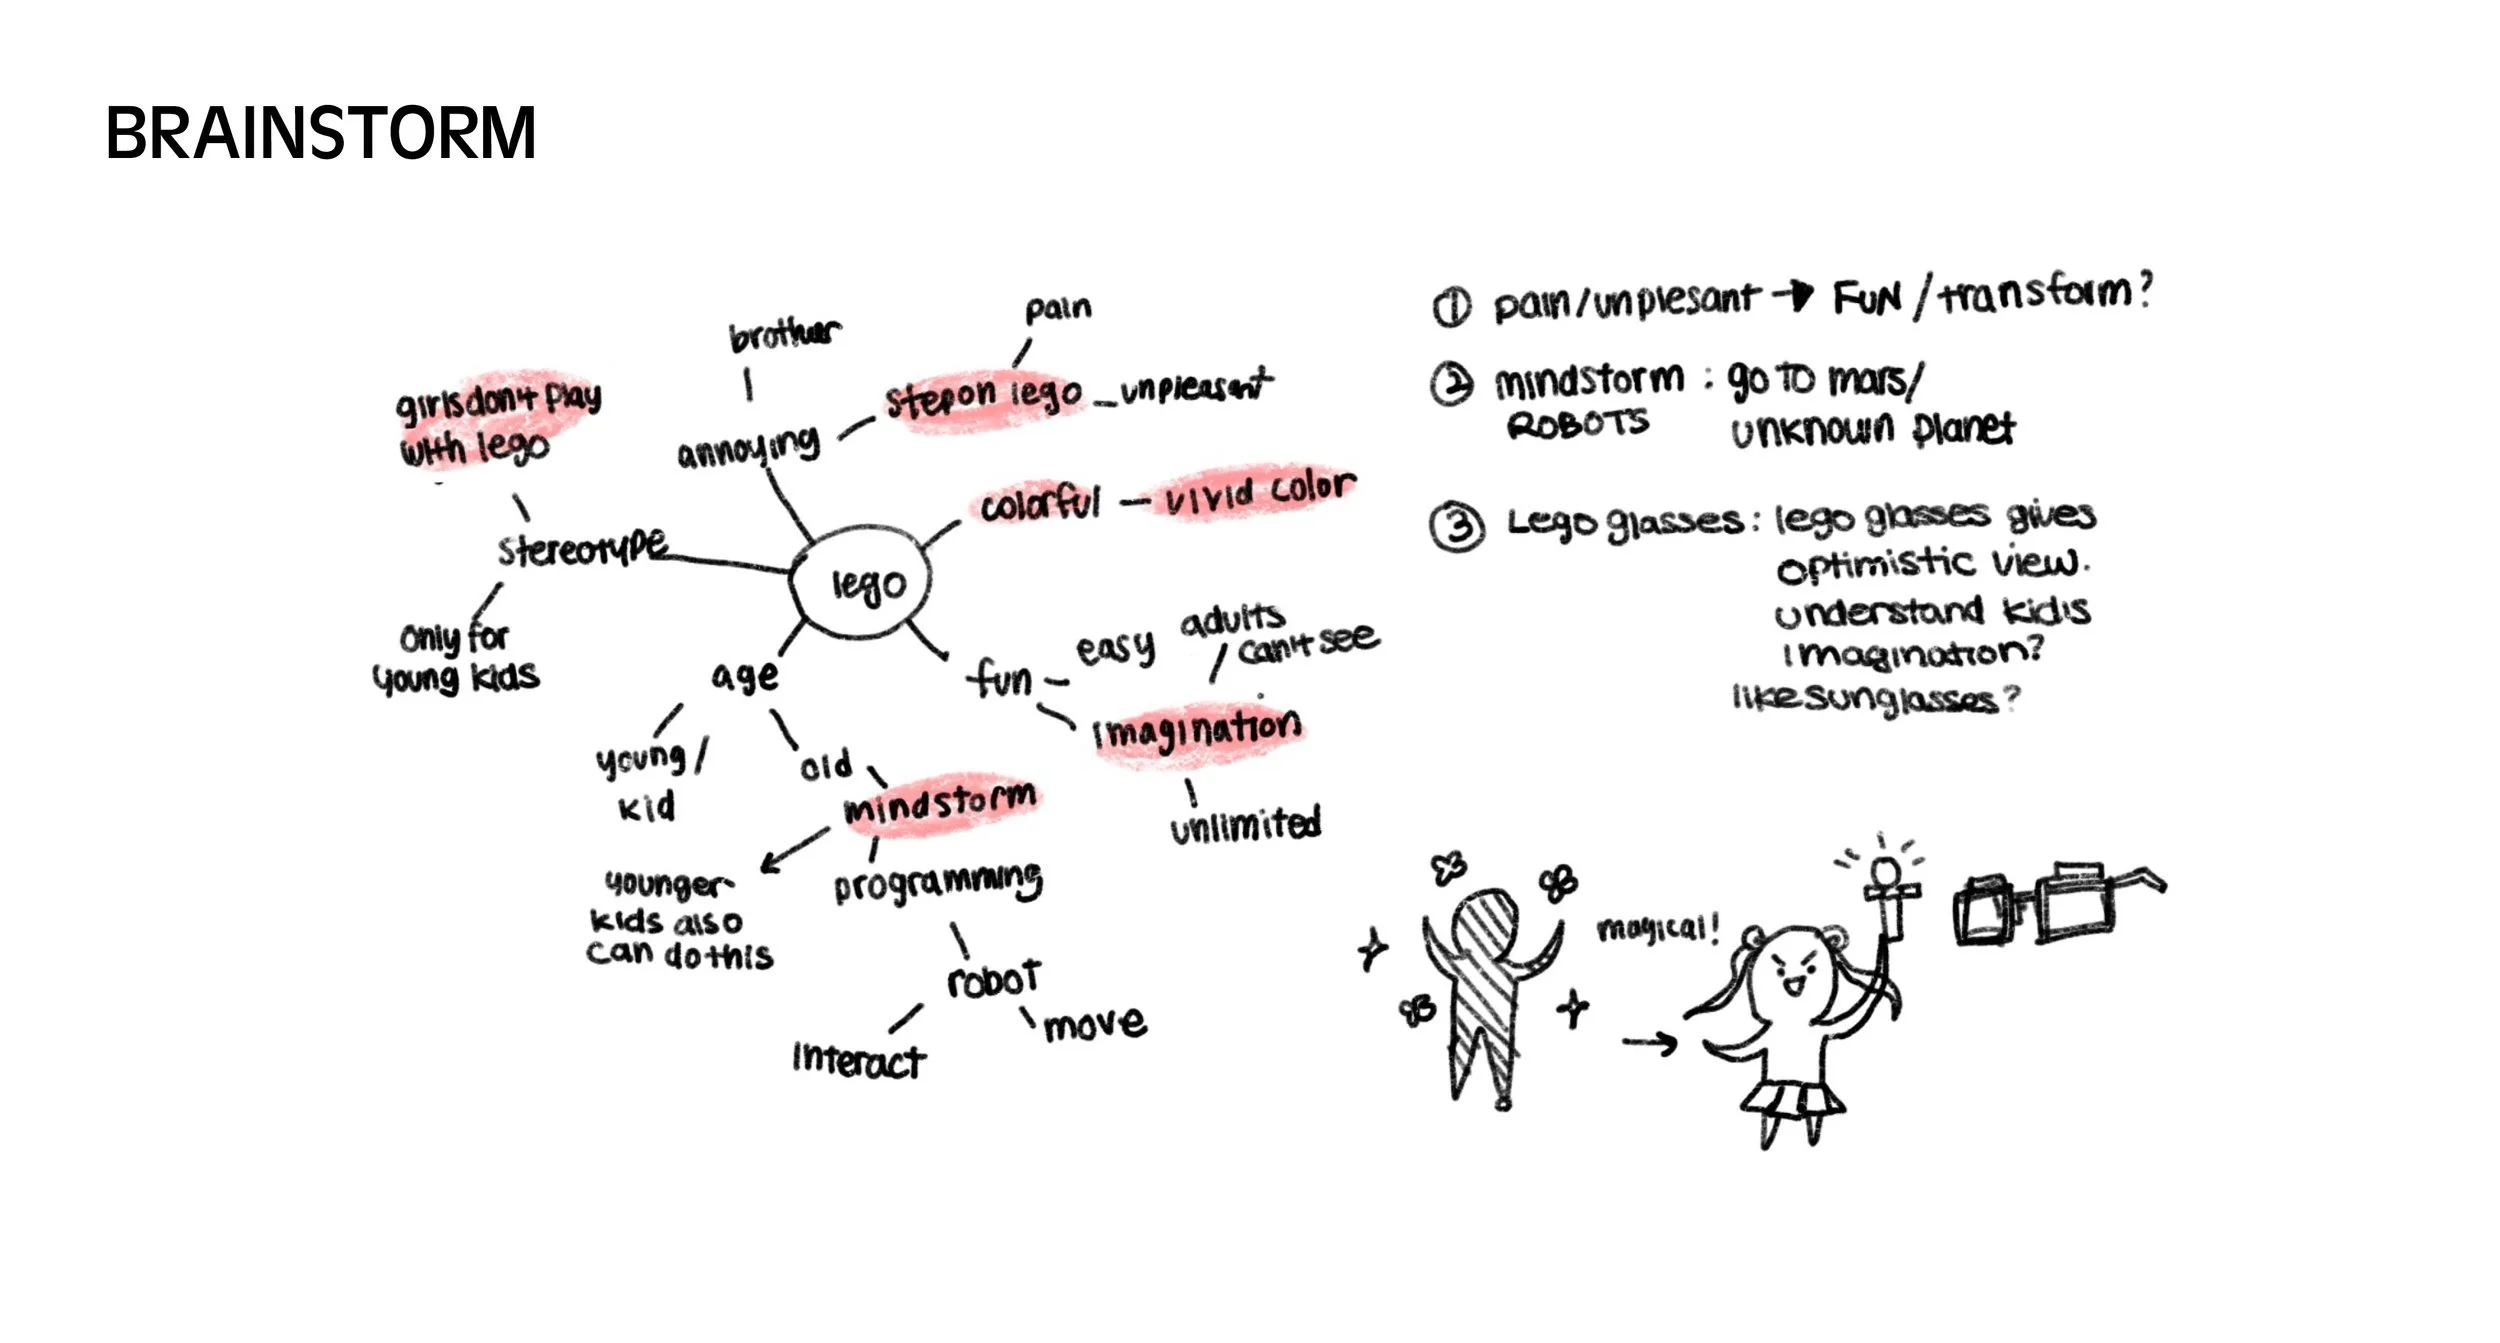 BRAINSTORM
brother
pain
girls don't play
with lego
annoying
step on lego
unpleasant
colorful
vivid color
stereotype
lego
only for
young kids
age
fun
easy
adults
can't see
imagination
unlimited
young/
kid
old
mindstorm
younger
kids also
can do this
programming
robot
interact
move
① pain/unplesant → FUN/transform?
② mindstorm : go to mars/
ROBOTS unknown planet
③ Lego glasses: lego glasses gives
optimistic view.
understand kids
imagination?
like sunglasses?
magical!